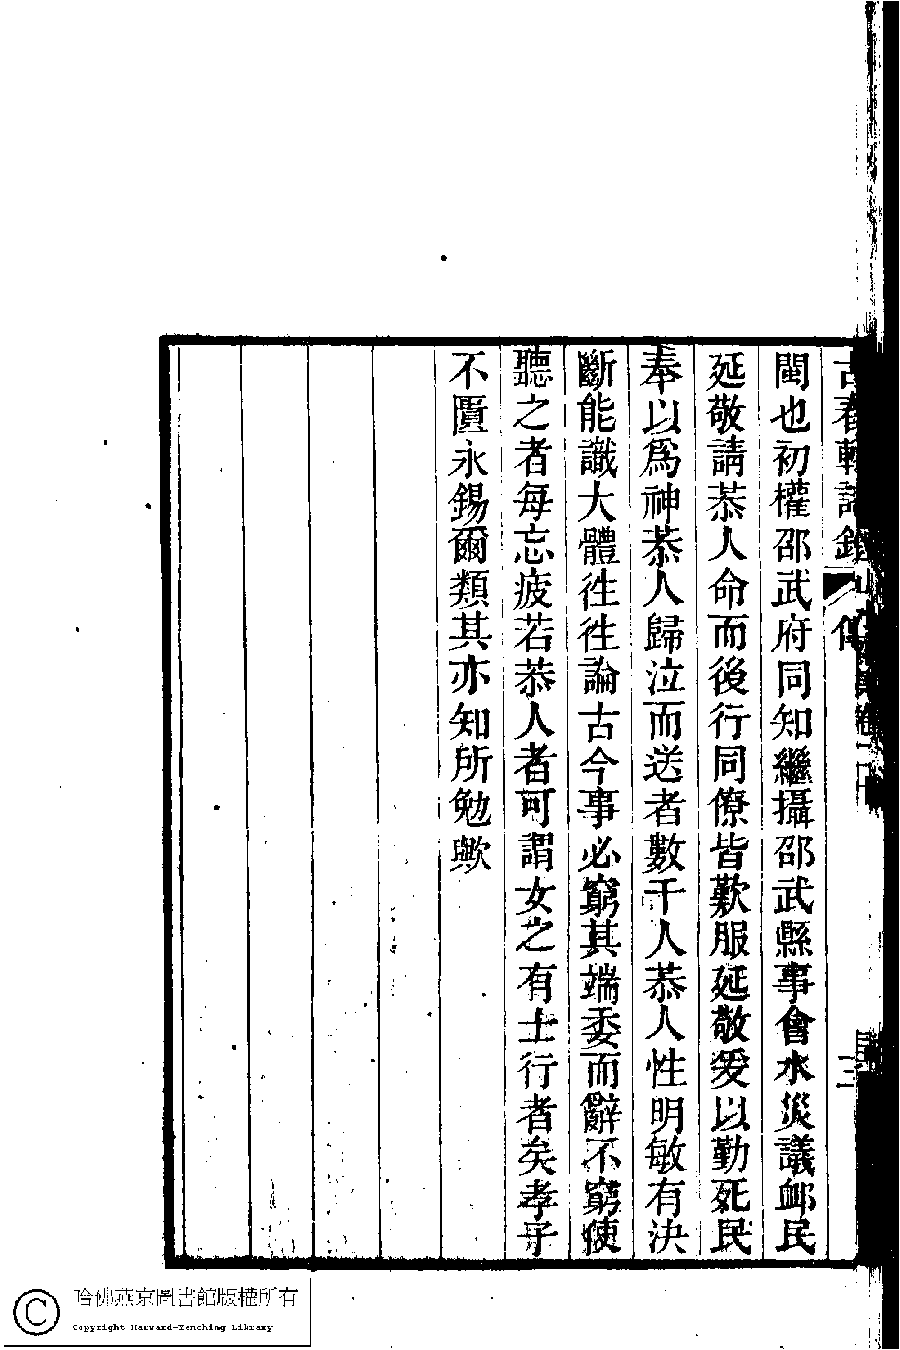 閩也初權邵武府同知繼攝邵武縣事會水災議䘏民
延敬請恭人命而後行同僚皆歎服延敬爰以勤死民
奉以爲神恭人歸泣而送者數千人恭人性明敏有決
斷能識大體徃徃論古今事必窮其端委而辭不窮使
聽之者每忘疲若恭人者可謂女之有士行者矣孝子
不匱永錫爾類其亦知所勉歟
哈佛燕京圖書館版權所有
Copyright Harvard-Yenching Library